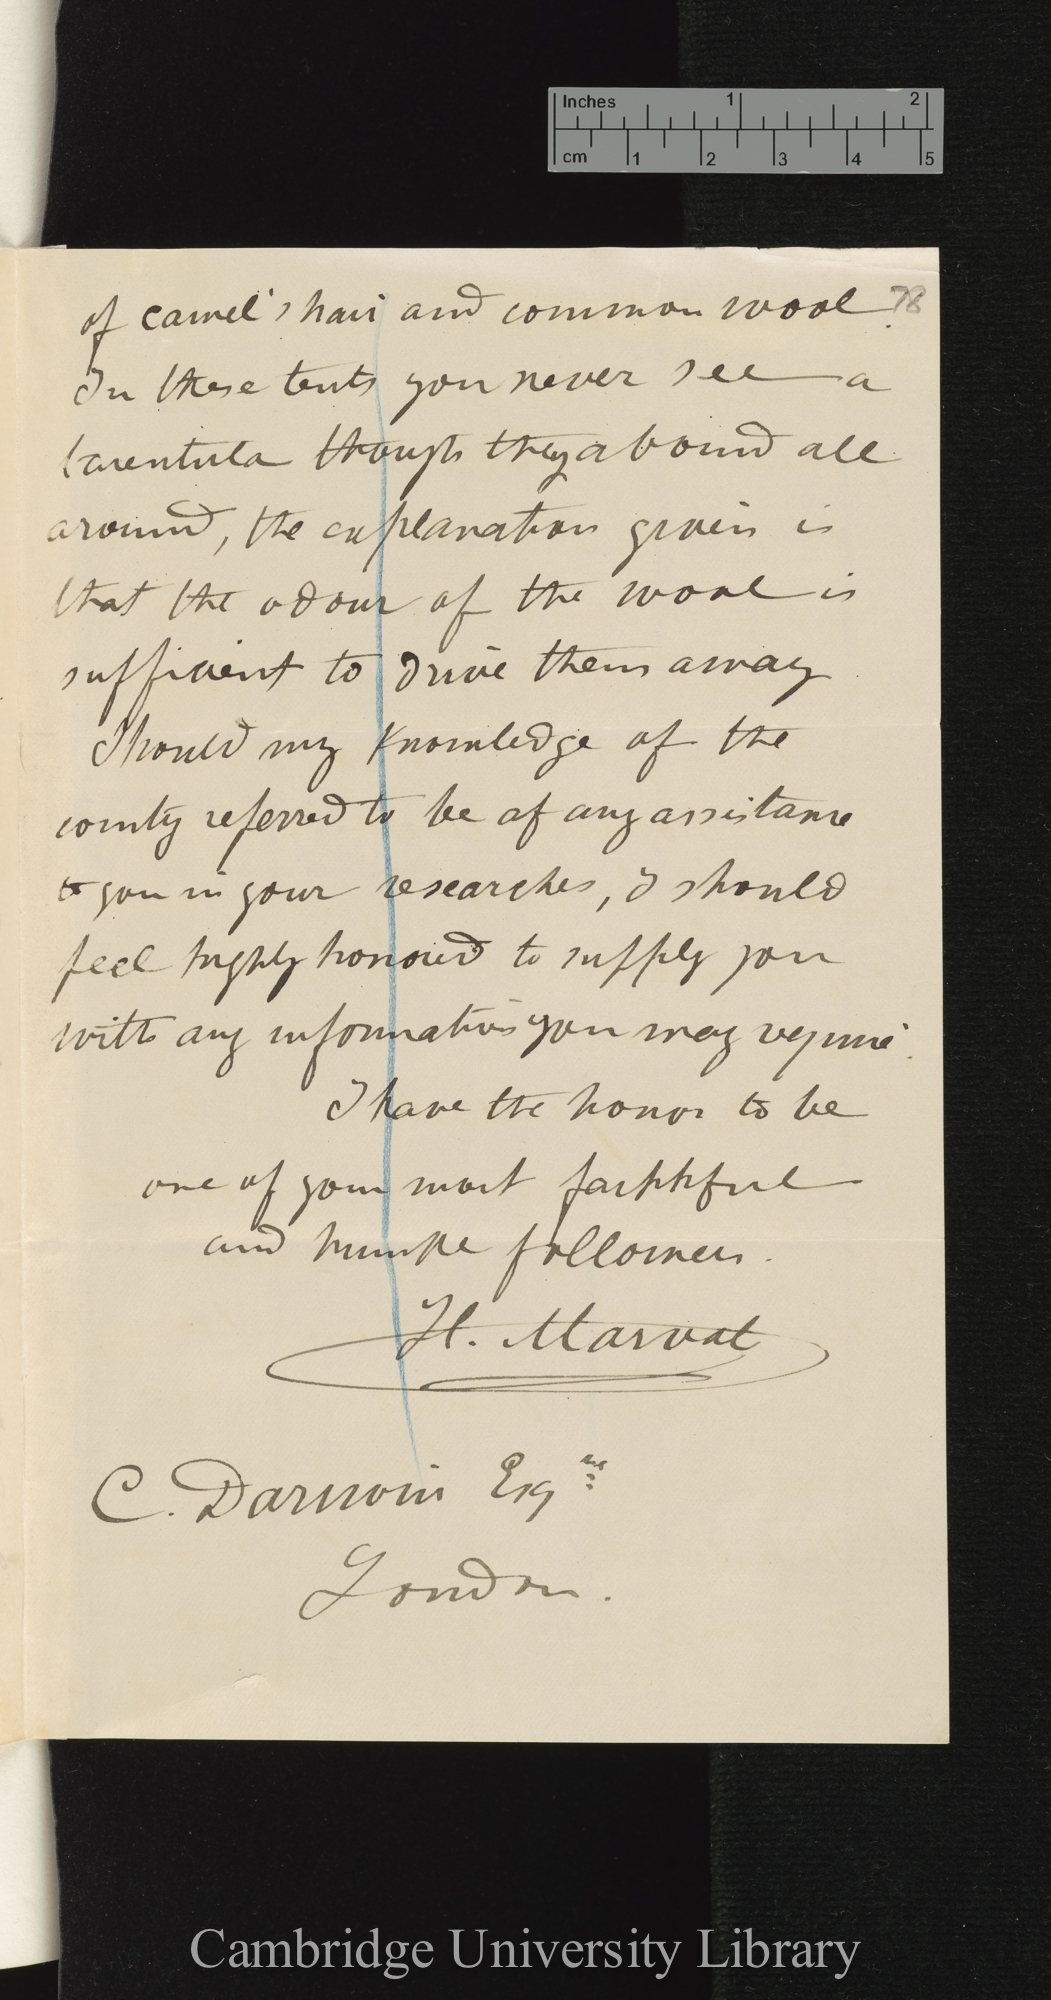 Inches 1 2
cm 1 2 3 4 5
78
of camel's hair and common wool.
In these tents you never see a
tarentula though they abound all
around, the explanation given is
that the odour of the wool is
sufficient to drive them away
Should my knowledge of the
county referred to be of any assistance
to you in your researches, I should
feel highly honored to supply you
with any information you may require.
I have the honor to be
one of your most faithful
and humble followers.
H. Marval
C. Darwin Esqre
London.
Cambridge University Library